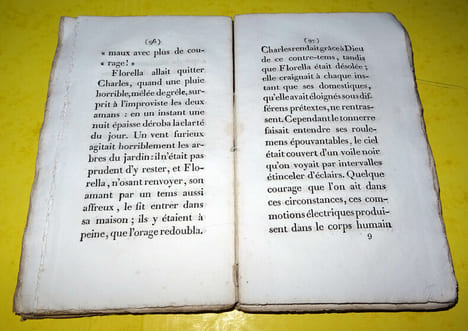 (96)
« maux avec plus de cou-
« rage! »
Florella allait quitter
Charles, quand une pluie
horrible, mêlée de grêle, sur-
prit à l'improviste les deux
amans : en un instant une
nuit épaisse déroba la clarté
du jour. Un vent furieux
agitait horriblement les ar-
bres du jardin: il n'était pas
prudent d'y rester, et Flo-
rella, n'osant renvoyer, son
amant par un tems aussi
affreux, le fit entrer dans
sa maison ; ils y étaient à
peine, que l'orage redoubla.
(97)
Charles rendait grâce à Dieu
de ce contre-tems, tandis
que Florella était désolée ;
elle craignait à chaque ins-
tant que ses domestiques,
qu'elle avait éloignés sous dif-
férens prétextes, ne rentras-
sent. Cependant le tonnerre
faisait entendre ses roule-
mens épouvantables, le ciel
était couvert d'un voile noir
qu'on voyait par intervalles
étinceler d'éclairs. Quelque
courage que l'on ait dans
ces circonstances, ces com-
motions électriques produi-
sent dans le corps humain
9